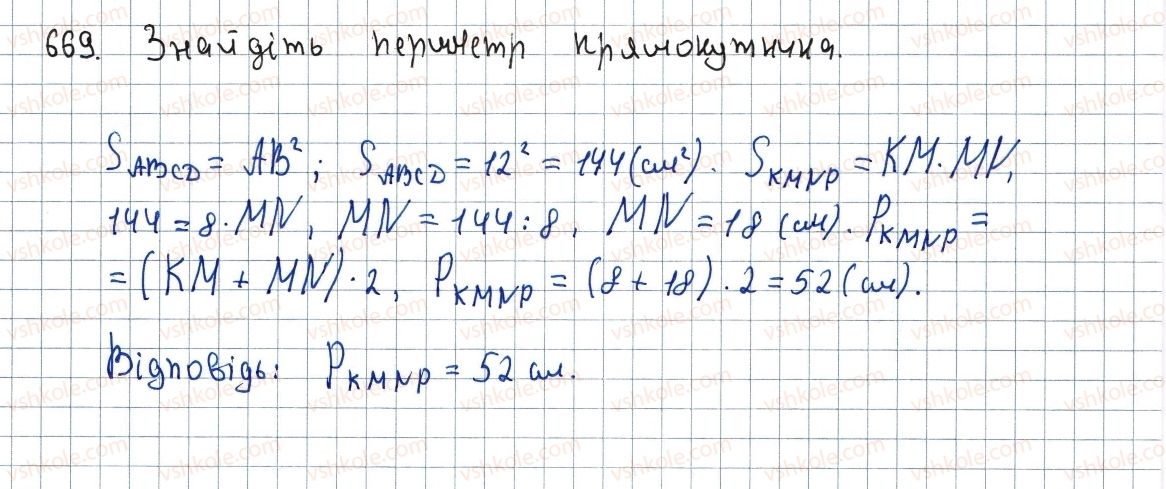 669. Знайдіть периметр прямокутника.
S_ABCD = AB²; S_ABCD = 12² = 144 (см²). S_KMNP = KM · MN,
144 = 8 · MN, MN = 144 : 8, MN = 18 (см). P_KMNP =
= (KM + MN) · 2, P_KMNP = (8 + 18) · 2 = 52 (см).
Відповідь: P_KMNP = 52 см.